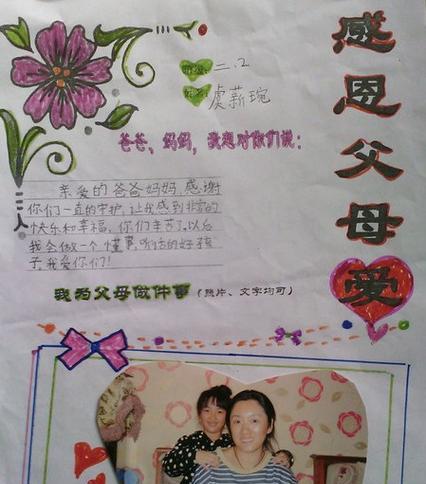 感恩父母爱
二.2
虞薪琬
爸爸、妈妈，我想对你们说：
亲爱的爸爸妈妈，感谢
你们一直的守护，让我感到非常的
快乐和幸福，你们辛苦了，以后
我会做一个懂事，听话的好孩
子，我爱你们！
我为父母做件事（照片、文字均可）